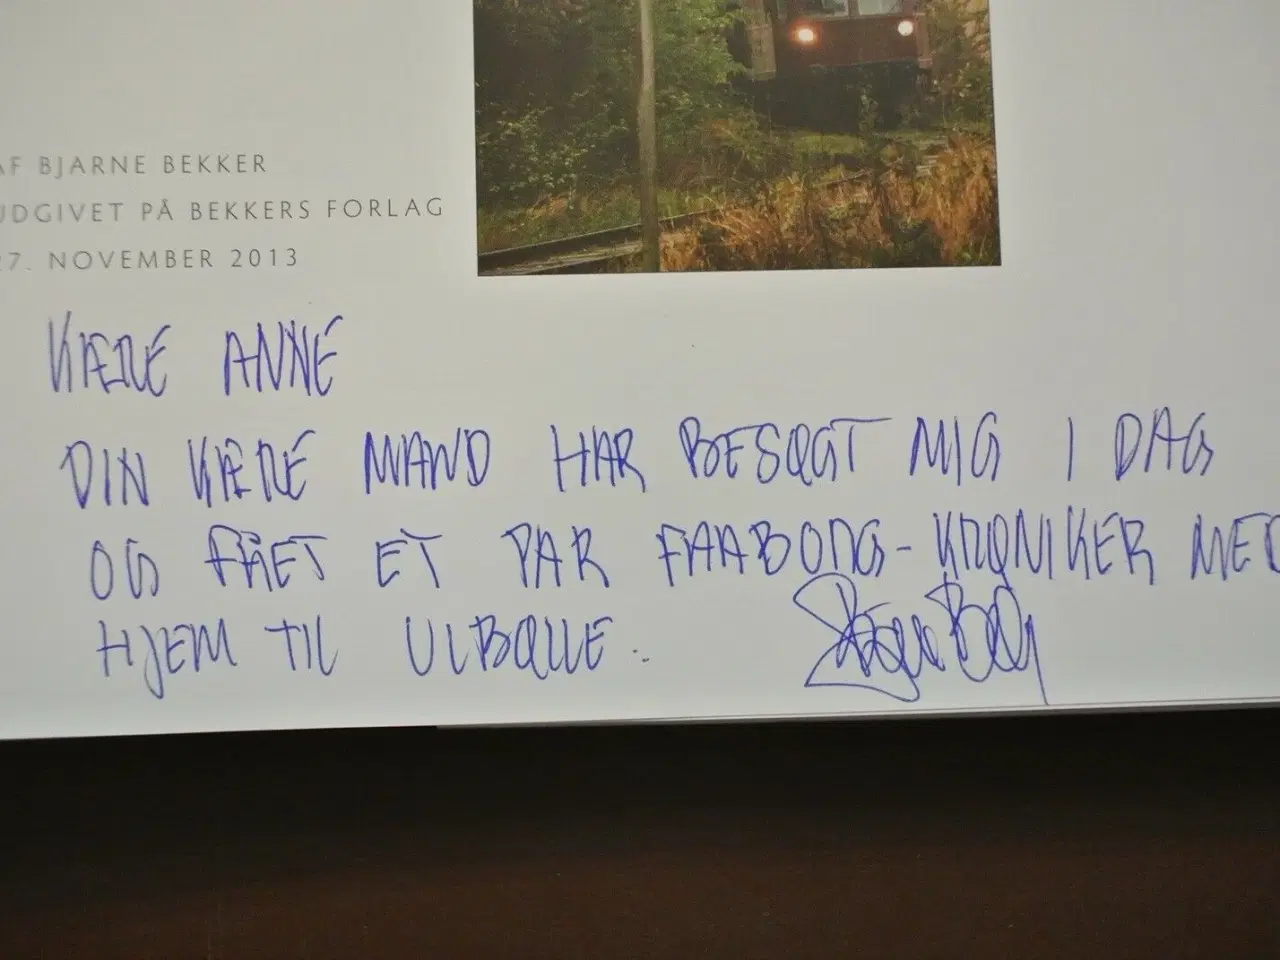 AF BJARNE BEKKER
UDGIVET PÅ BEKKERS FORLAG
27. NOVEMBER 2013
KÆRE ANNE
DIN KÆRE MAND HAR BESØGT MIG I DAG
OG FÅET ET PAR FAABORG-KRØNIKER MED
HJEM TIL ULBØLLE.